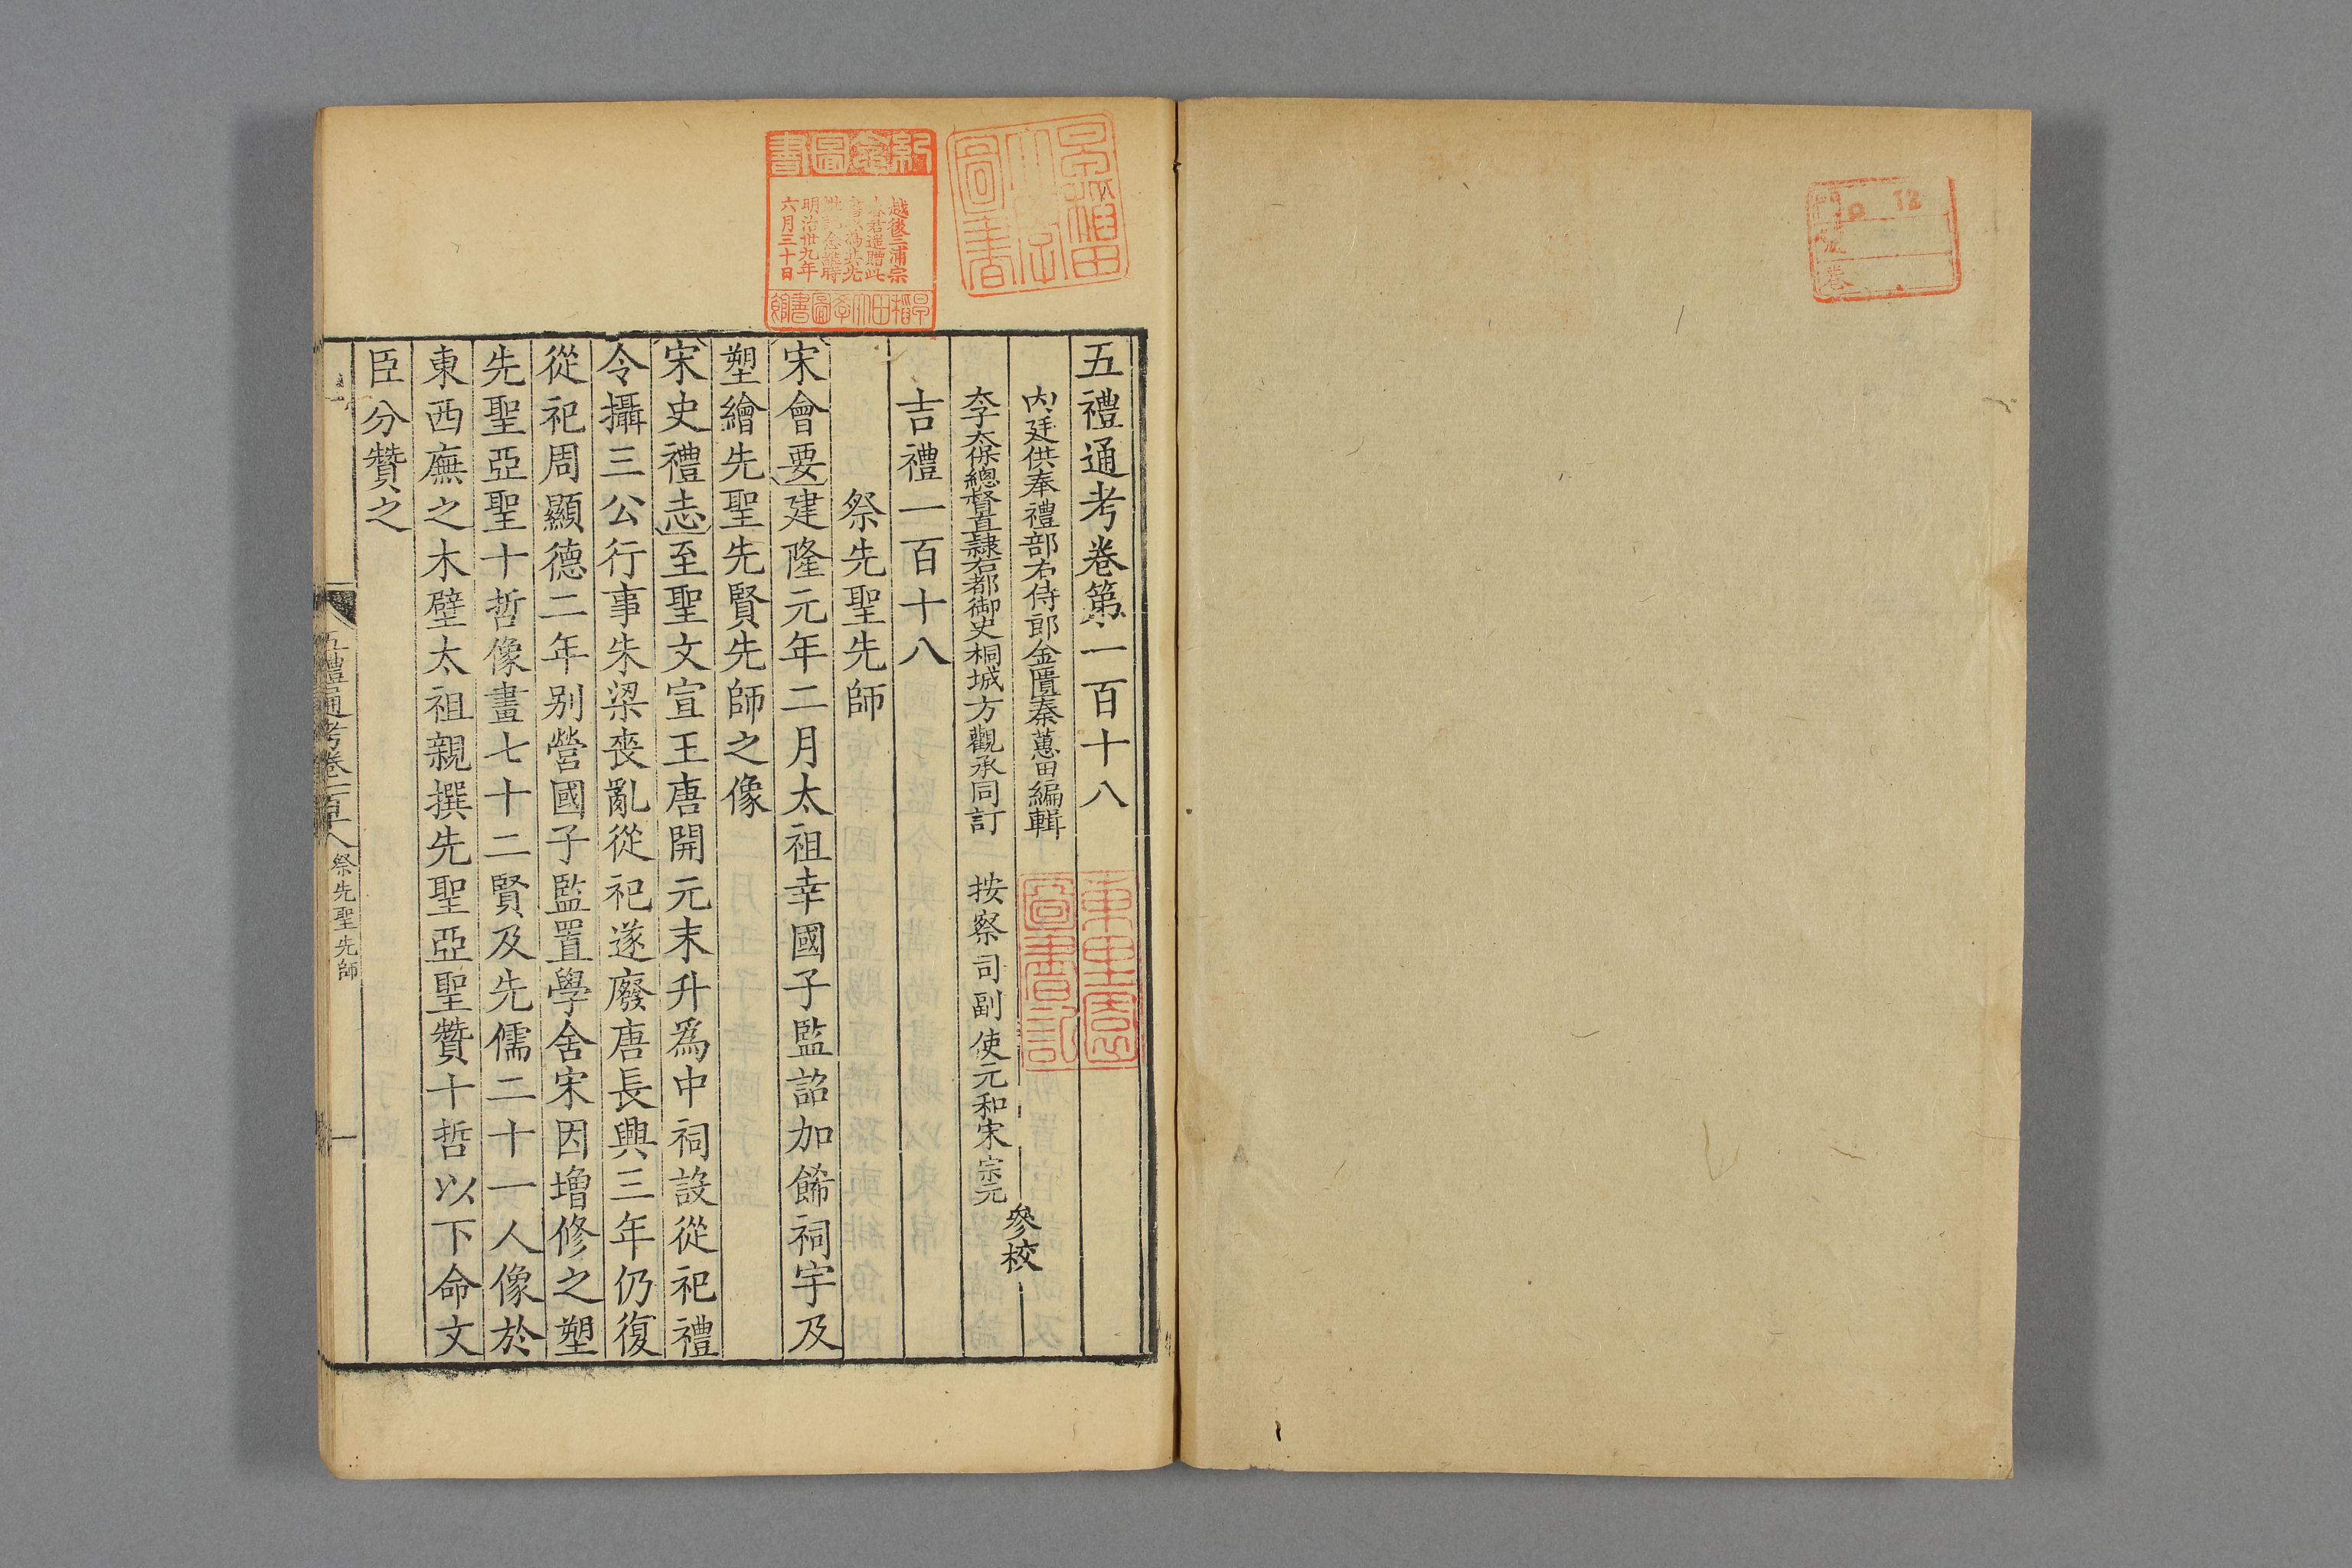 五禮通考卷第一百十八
內廷供奉禮部右侍郎金匱秦蕙田編輯
太子太保總督直隸右都御史桐城方觀承同訂 按察司副使元和宋宗元
參校
吉禮一百十八
祭先聖先師
宋會要建隆元年二月太祖幸國子監詔加飾祠宇及
塑繪先聖先賢先師之像
宋史禮志至聖文宣王唐開元末升爲中祠設從祀禮
令攝三公行事朱梁喪亂從祀遂廢唐長興三年仍復
從祀周顯德二年别營國子監置學舍宋因增修之塑
先聖亞聖十哲像畫七十二賢及先儒二十一人像於
東西廡之木壁太祖親撰先聖亞聖贊十哲以下命文
臣分贊之
五禮通考卷一百十八 祭先聖先師 一
越後三浦宗
春君進贈此
明治卅九年
六月三十日
早稻田大學圖書館
早稻田大學圖書
東里園
圖書記
門
號
卷
12